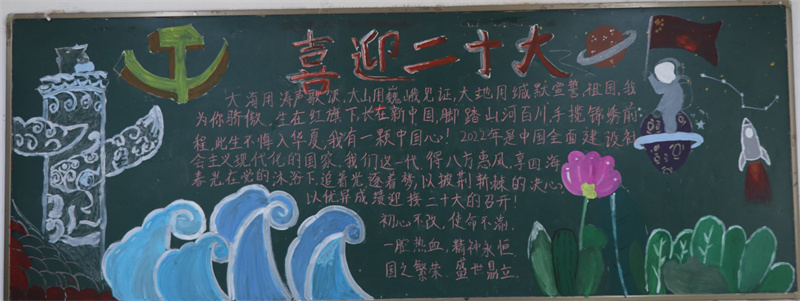 喜迎二十大
大海用涛声歌颂,大山用巍峨见证,大地用缄默宣誓,祖国,我
为你骄傲。生在红旗下,长在新中国,脚踏山河百川,手揽锦绣前
程,此生不悔入华夏,我有一颗中国心!2022年是中国全面建设社
会主义现代化的国家、我们这一代,得八方惠风,享四海
春光在党的沐浴下,追着光逐着梦,以披荆斩棘的决心,
以优异成绩迎接二十大的召开!
初心不改,使命不渝,
一腔热血,精神永恒
国之繁荣 盛世鼎立.